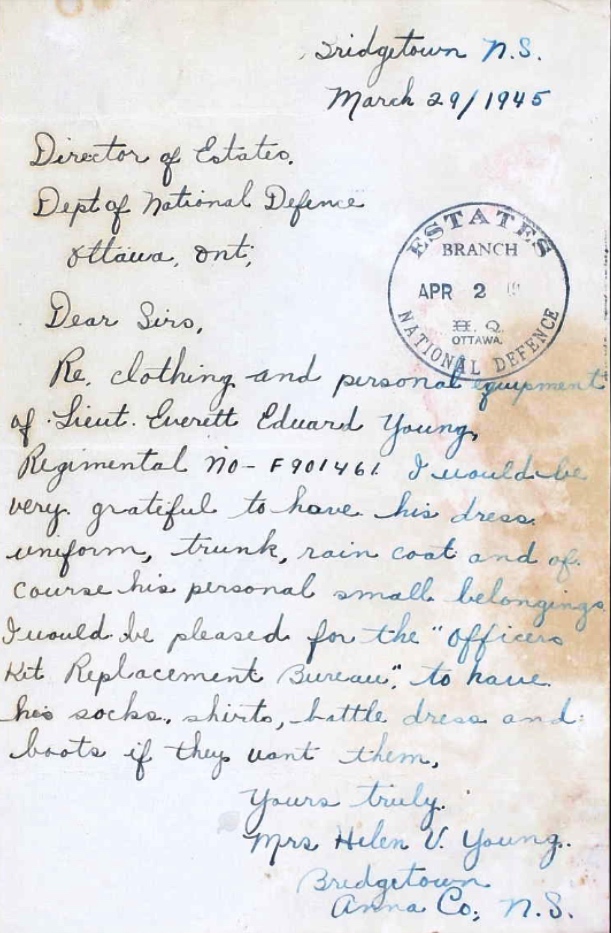 Bridgetown N.S.
March 29/1945
Director of Estates.
Dept of National Defence
Ottawa, Ont,
ESTATES
BRANCH
APR 2
H. Q.
OTTAWA.
NATIONAL DEFENCE
Dear Sirs,
Re. clothing and personal equipment
of Lieut. Everett Edward Young,
Regimental No - F901461. I would be
very grateful to have his dress
uniform, trunk, rain coat and of
course his personal small belongings
I would be pleased for the "Officers
Kit Replacement Bureau". to have
his socks, shirts, battle dress and
boots if they want them,
Yours truly.
Mrs Helen V. Young.
Bridgetown
Anna Co; N.S.